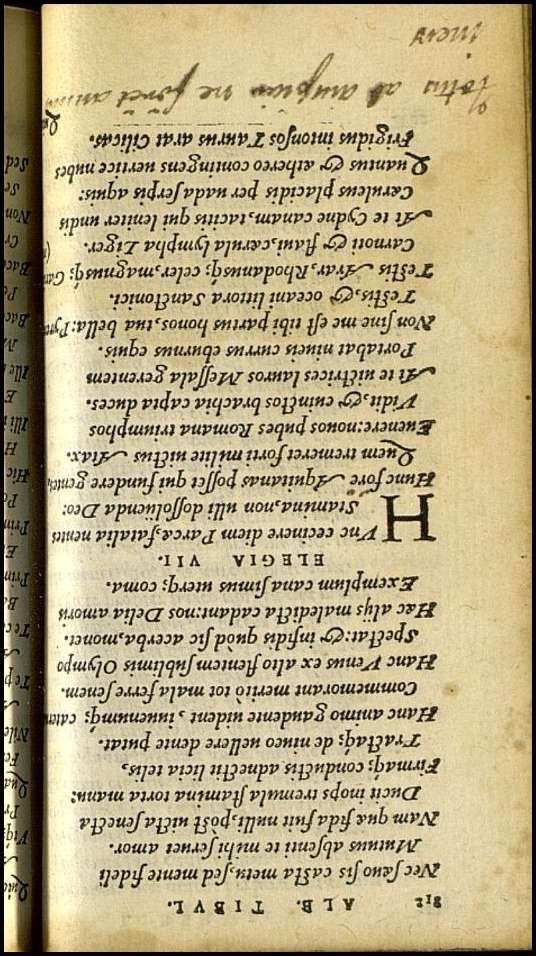 218 ALB. TIBVL.
Nec sæuo sis casta metu, sed mente fideli
Mutuus absenti te mihi seruet amor.
Nam quæ fida fuit nulli, pòst uicta senecta
Ducit inops tremula stamina torta manu:
Firmaq; conductis adnectit licia telis,
Tractaq; de niueo uellere dente putat.
Hanc animo gaudente uident, iuuenumq; cateru
Commemorant meritò tot mala ferre senem.
Hanc Venus ex alto flentem sublimis Olympo
Spectat: & infidis quòd sic acerba, monet.
Hæc alijs maledicta cadant: nos Delia amoris
Exemplum cana simus uterq; coma.
ELEGIA VII.
HVnc cecinere diem Parcæ, fatalia nentes
Stamina, non ulli dissoluenda Deo:
Hunc fore Aquitanas posset qui fundere gentes
Quem tremeret forti milite uictus Atax.
Euenere: nouos pubes Romana triumphos
Vidit, & euinctos brachia capta duces.
At te uictrices lauros Messala gerentem
Portabat niueis currus eburnus equis.
Non sine me est tibi partus honos, tua bella: Pyre
Testis, &, oceani littora Sanctonici.
Testis Arar, Rhodanusq; celer, magnusq; Gar
Carnoti & flaui, cærula lympha Liger.
At te Cydne canam, tacitis qui leniter undis
Cæruleus placidis per uada serpis aquis:
Quantus & æthereo contingens uertice nubes
Frigidus intonsos Taurus arat Cilicas.
Totus ab auspicio ne foret annus
iners